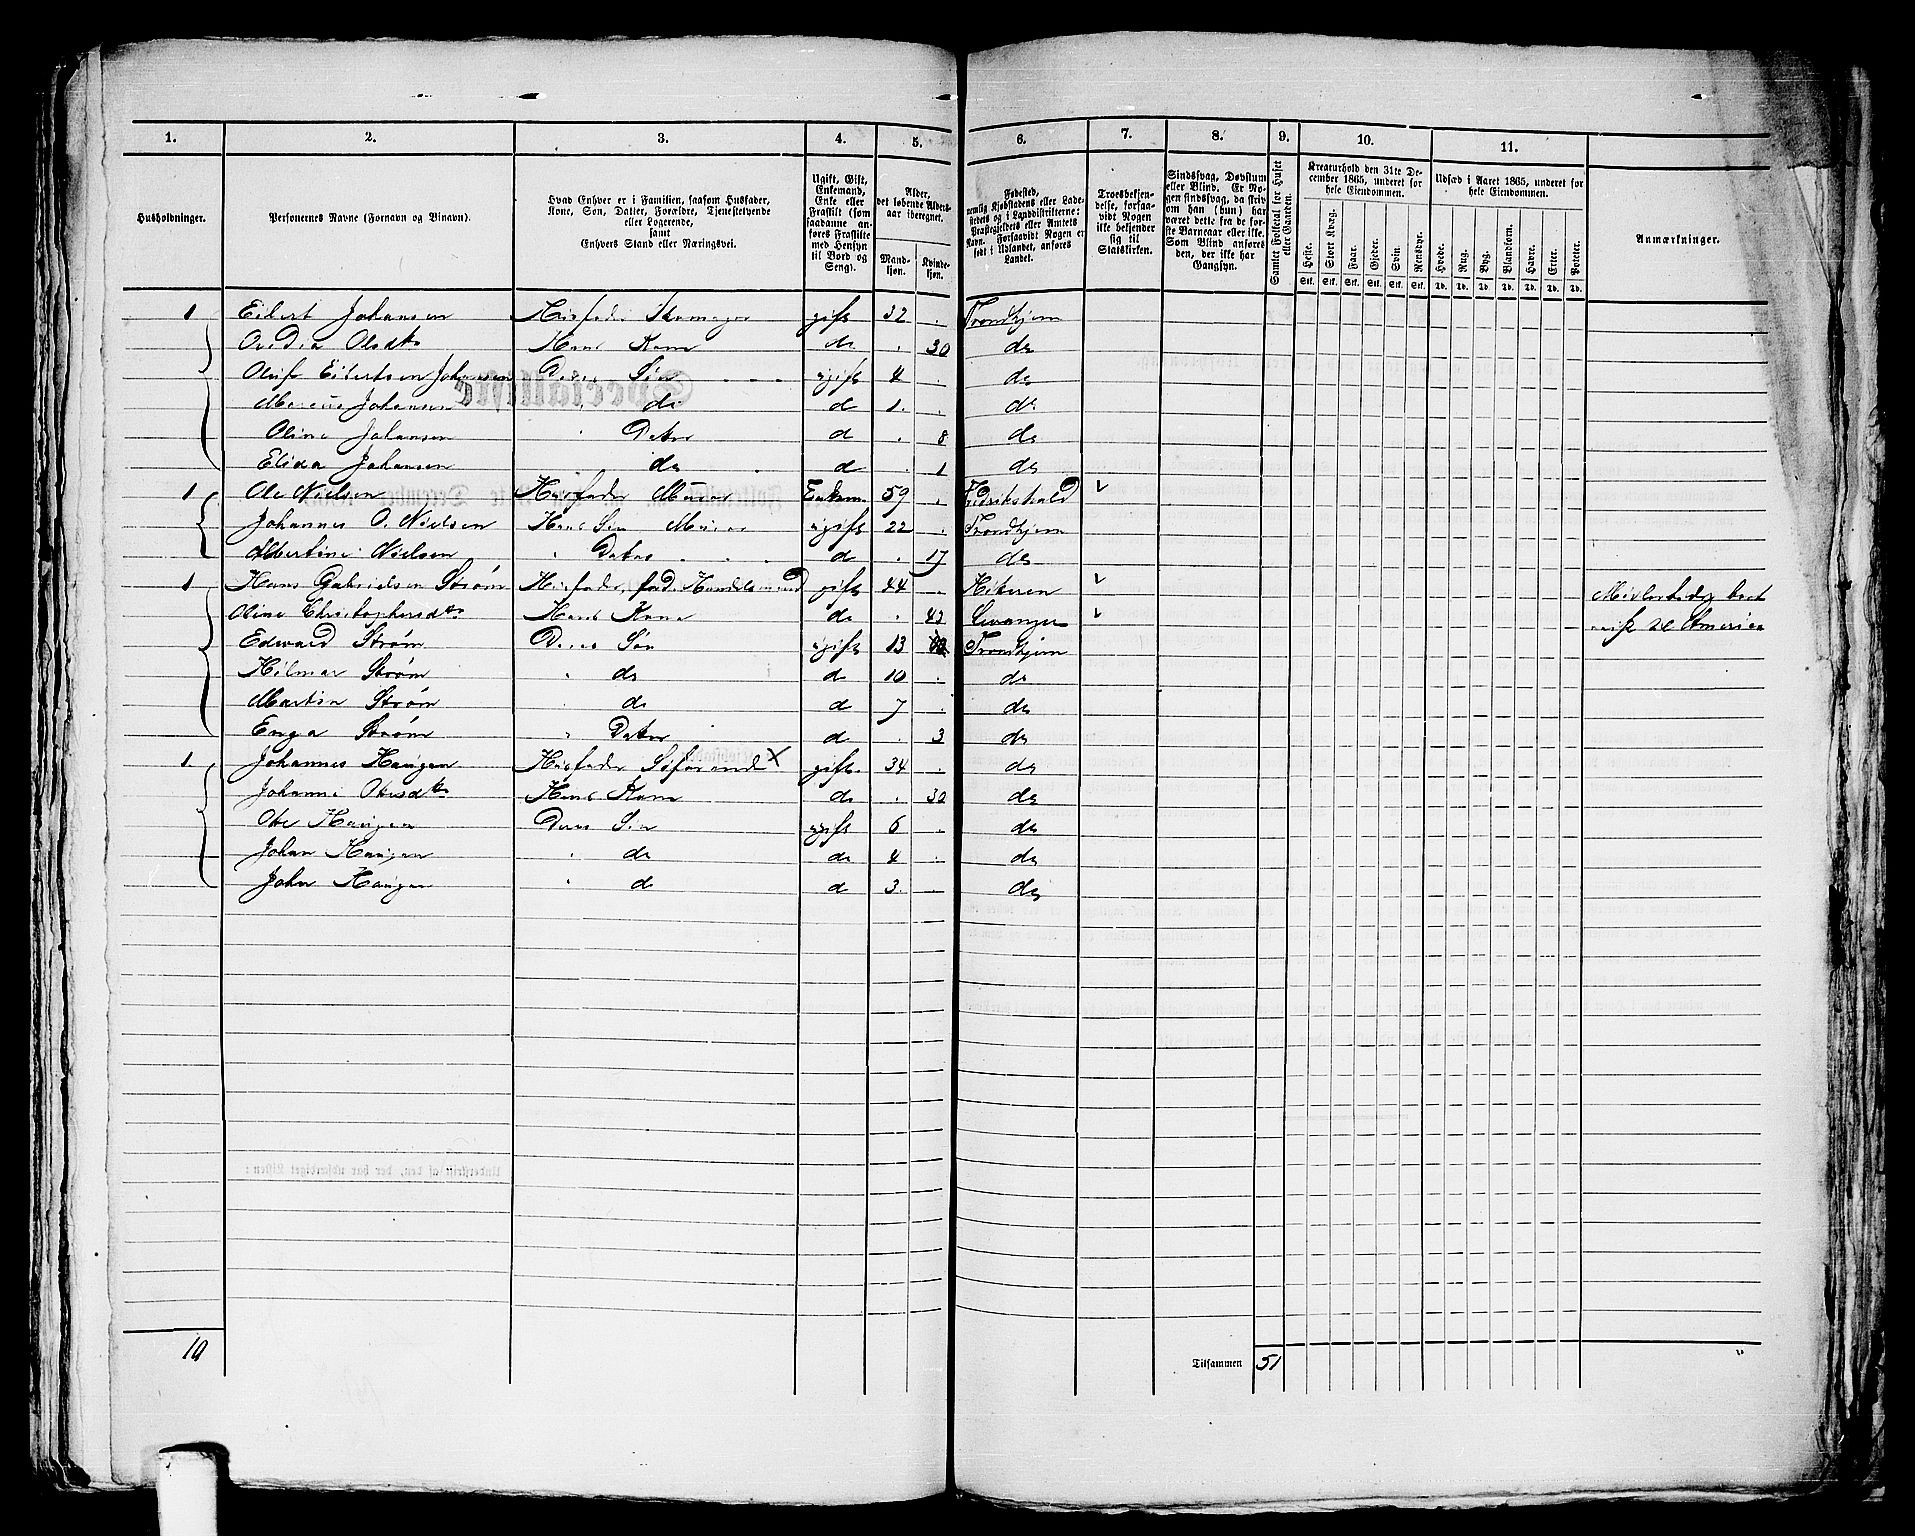 1. 2. 3. 4. 5. 6. 7. 8. 9. 10. 11.
Husholdninger.
Personernes Navne (Fornavn og Binavn).
Hvad Enhver er i Familien, saasom Husfader,
Kone, Søn, Datter, Forældre, Tjenestetyende
eller Logerende,
samt
Enhvers Stand eller Næringsvei.
Ugift, Gift,
Enkemand,
Enke eller
Fraskilt (som
saadanne an-
føres Fraskilte
med Hensyn
til Bord og
Seng).
Alder,
det løbende Alders-
aar iberegnet.
Mand-
kjøn.
Kvinde-
kjøn.
Fødested,
nemlig Kjøbstadens eller Lade-
stedets og i Landdistrikterne:
Præstegjeldets eller Amtets
Navn. Forsaavidt Nogen er
født i Udlandet, anføres
Landet.
Troesbekjen-
delse, forsaa-
vidt Nogen
ikke bekjender
sig til
Statskirken.
Sindssvag, Døvstum
eller Blind. Er No-
gen sindssvag, da skriv
om han (hun) har
været dette fra de før-
ste Barneaar eller ikke.
Som Blind anføres
den, der ikke har
Gangsyn.
Samlet Folketal for Huset
eller Gaarden.
Kreaturhold den 31te De-
cember 1865, underet for
hele Eiendommen.
Heste. Stort Kvæg. Faar. Gjeder. Svin. Rensdyr.
Stk. Stk. Stk. Stk. Stk. Stk.
Udsæd i Aaret 1865, underet for
hele Eiendommen.
Hvede. Rug. Byg. Blandkorn. Havre. Erter. Poteter.
Td. Td. Td. Td. Td. Td. Td.
Anmærkninger.
1 Eilert Johansen Husfader Skomager gift 32 . Trondhjem
Ovidia Olsdtr Hans Kone do . 30 do
Oluf Eilertsen Johansen Deres Søn ugift 4 . do
Marcus Johansen " do d 1 . do
Oline Johansen " Datter d . 8 do
Elida Johansen " do d . 1 do
1 Ole Nielsen Husfader Murer Enkem 59 . Fredrikshald
Johannes O. Nielsen Hans Søn Murer ugift 22 . Trondhjem
Albertine Nielsen " Datter d . 17 do
1 Hans Gabrielsen Strøm Husfader, fad. Handelsmand gift 44 . Hiteren
Oline Christophersdtr Hans Kone do . 42 Levanger
Edward Strøm Deres Søn ugift 13 Trondhjem
reist til America
Hilmar Strøm " do d 10 . do
Martin Strøm " do d 7 . do
Strøm " Datter d . 3 do
1 Johannes Haugan Husfader Søfarende X gift 34 . do
Johanne Olesdtr Hans Kone do . 30 do
Ole Haugan Deres Søn ugift 6 . do
Johan Haugan " do do 4 . do
John Haugan " d d 3 . do
10 Tilsammen 51 "